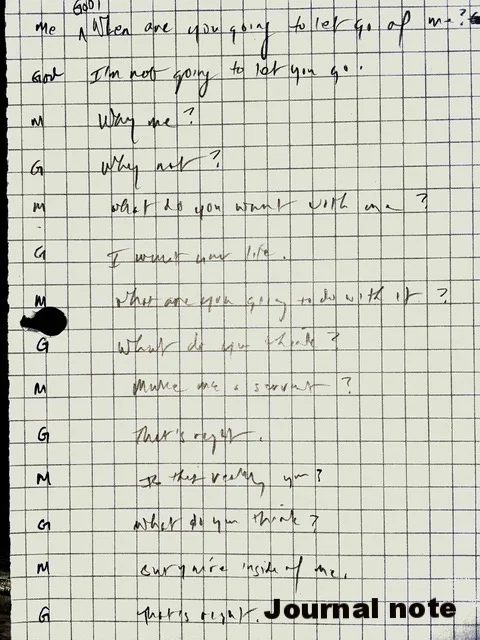 God!
Me When are you going to let go of me?
God I'm not going to let you go.
M Why me?
G Why not?
M What do you want with me?
G I want your life.
M What are you going to do with it?
G What do you think?
M Make me a servant?
G That's right.
M Is this really you?
G What do you think?
M you're inside of me.
G That's right.
Journal note